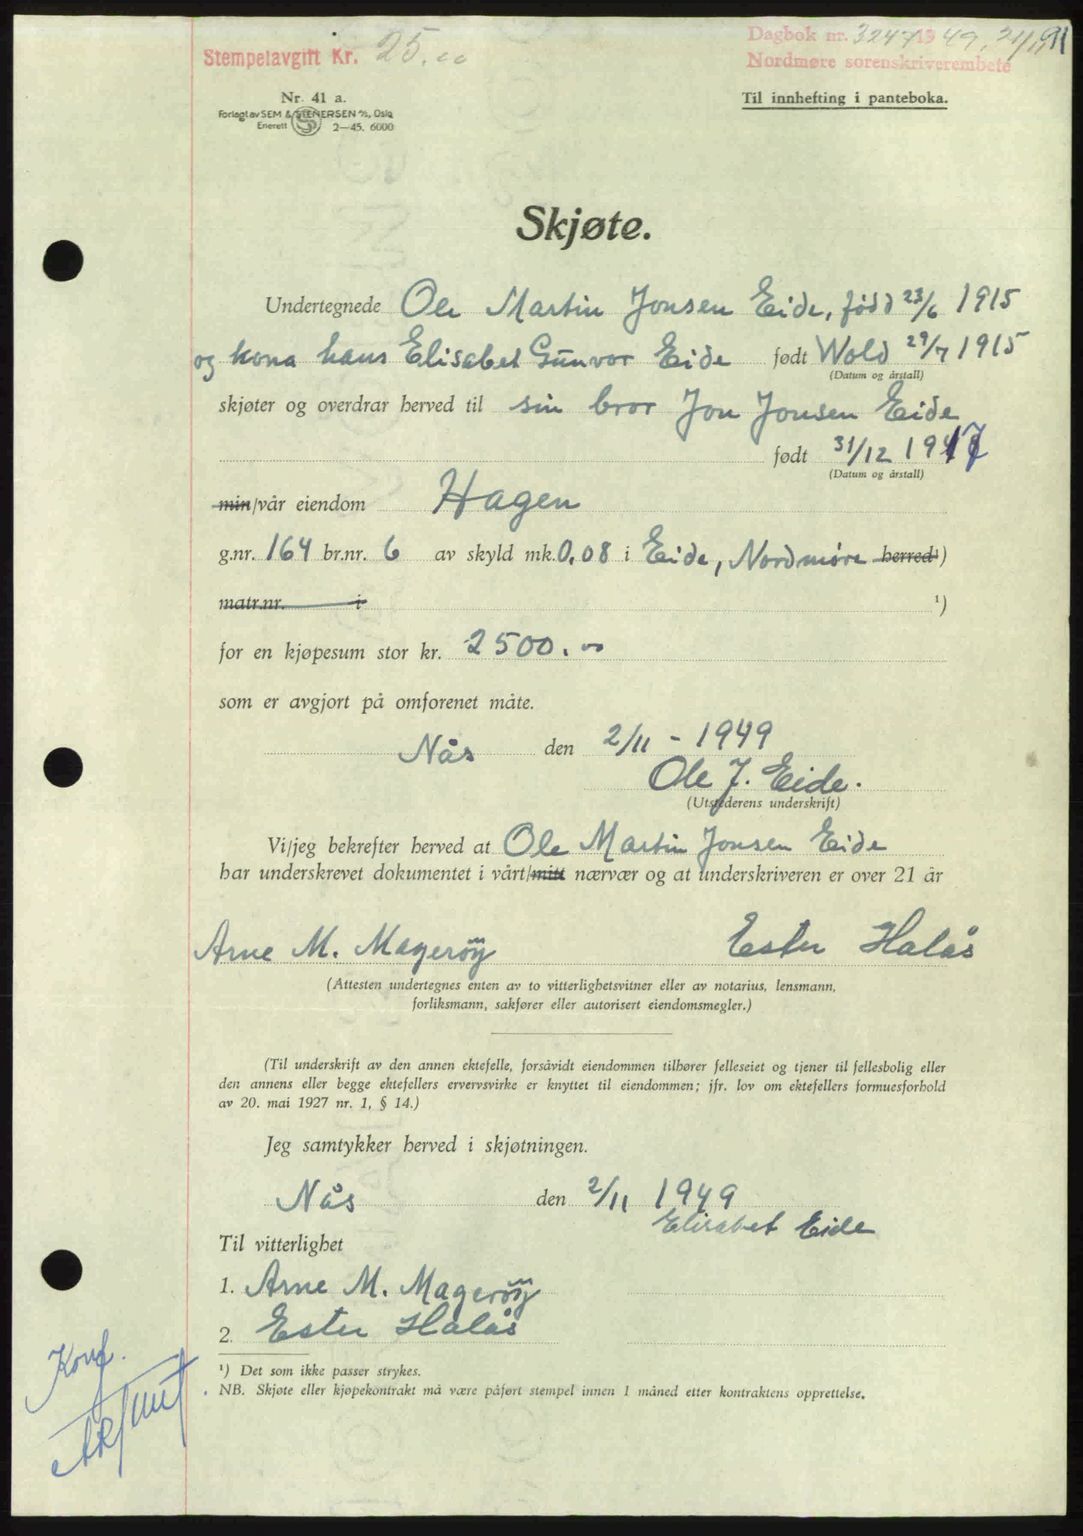 Stempelavgift Kr. 25.00
Dagbok nr. 3247 1949, 21/11
Nordmøre sorenskriverembete
Nr. 41 a.
Forlagt av SEM & STENERSEN A/S, Oslo
Enerett 2—45. 6000
Til innhefting i panteboka.
Skjøte.
Undertegnede Ole Martin Jonsen Eide, født 23/6 1915
og kona hans Elisabet Gunvor Eide født Wold 29/7 1915
(Datum og årstall)
skjøter og overdrar herved til sin bror Jon Jonsen Eide
født 31/12 1917
(Datum og årstall)
min/vår eiendom Hagen
g.nr. 164 br.nr. 6 av skyld mk. 0,08 i Eide, Nordmøre herred¹)
matr.nr. i ¹)
for en kjøpesum stor kr. 2500.00
som er avgjort på omforenet måte.
Nås den 2/11 - 1949
Ole J. Eide.
(Utstederens underskrift)
Vi/jeg bekrefter herved at Ole Martin Jonsen Eide
har underskrevet dokumentet i vårt/mitt nærvær og at underskriveren er over 21 år
Arne M. Magerøy Ester Halås
(Attesten undertegnes enten av to vitterlighetsvitner eller av notarius, lensmann,
forliksmann, sakfører eller autorisert eiendomsmegler.)
(Til underskrift av den annen ektefelle, forsåvidt eiendommen tilhører felleseiet og tjener til fellesbolig eller
den annens eller begge ektefellers ervervsvirke er knyttet til eiendommen; jfr. lov om ektefellers formuesforhold
av 20. mai 1927 nr. 1, § 14.)
Jeg samtykker herved i skjøtningen.
Nås den 2/11 1949
Elisabet Eide
Til vitterlighet
1. Arne M. Magerøy
2. Ester Halås
¹) Det som ikke passer strykes.
NB. Skjøte eller kjøpekontrakt må være påført stempel innen 1 måned etter kontraktens opprettelse.
Konf.